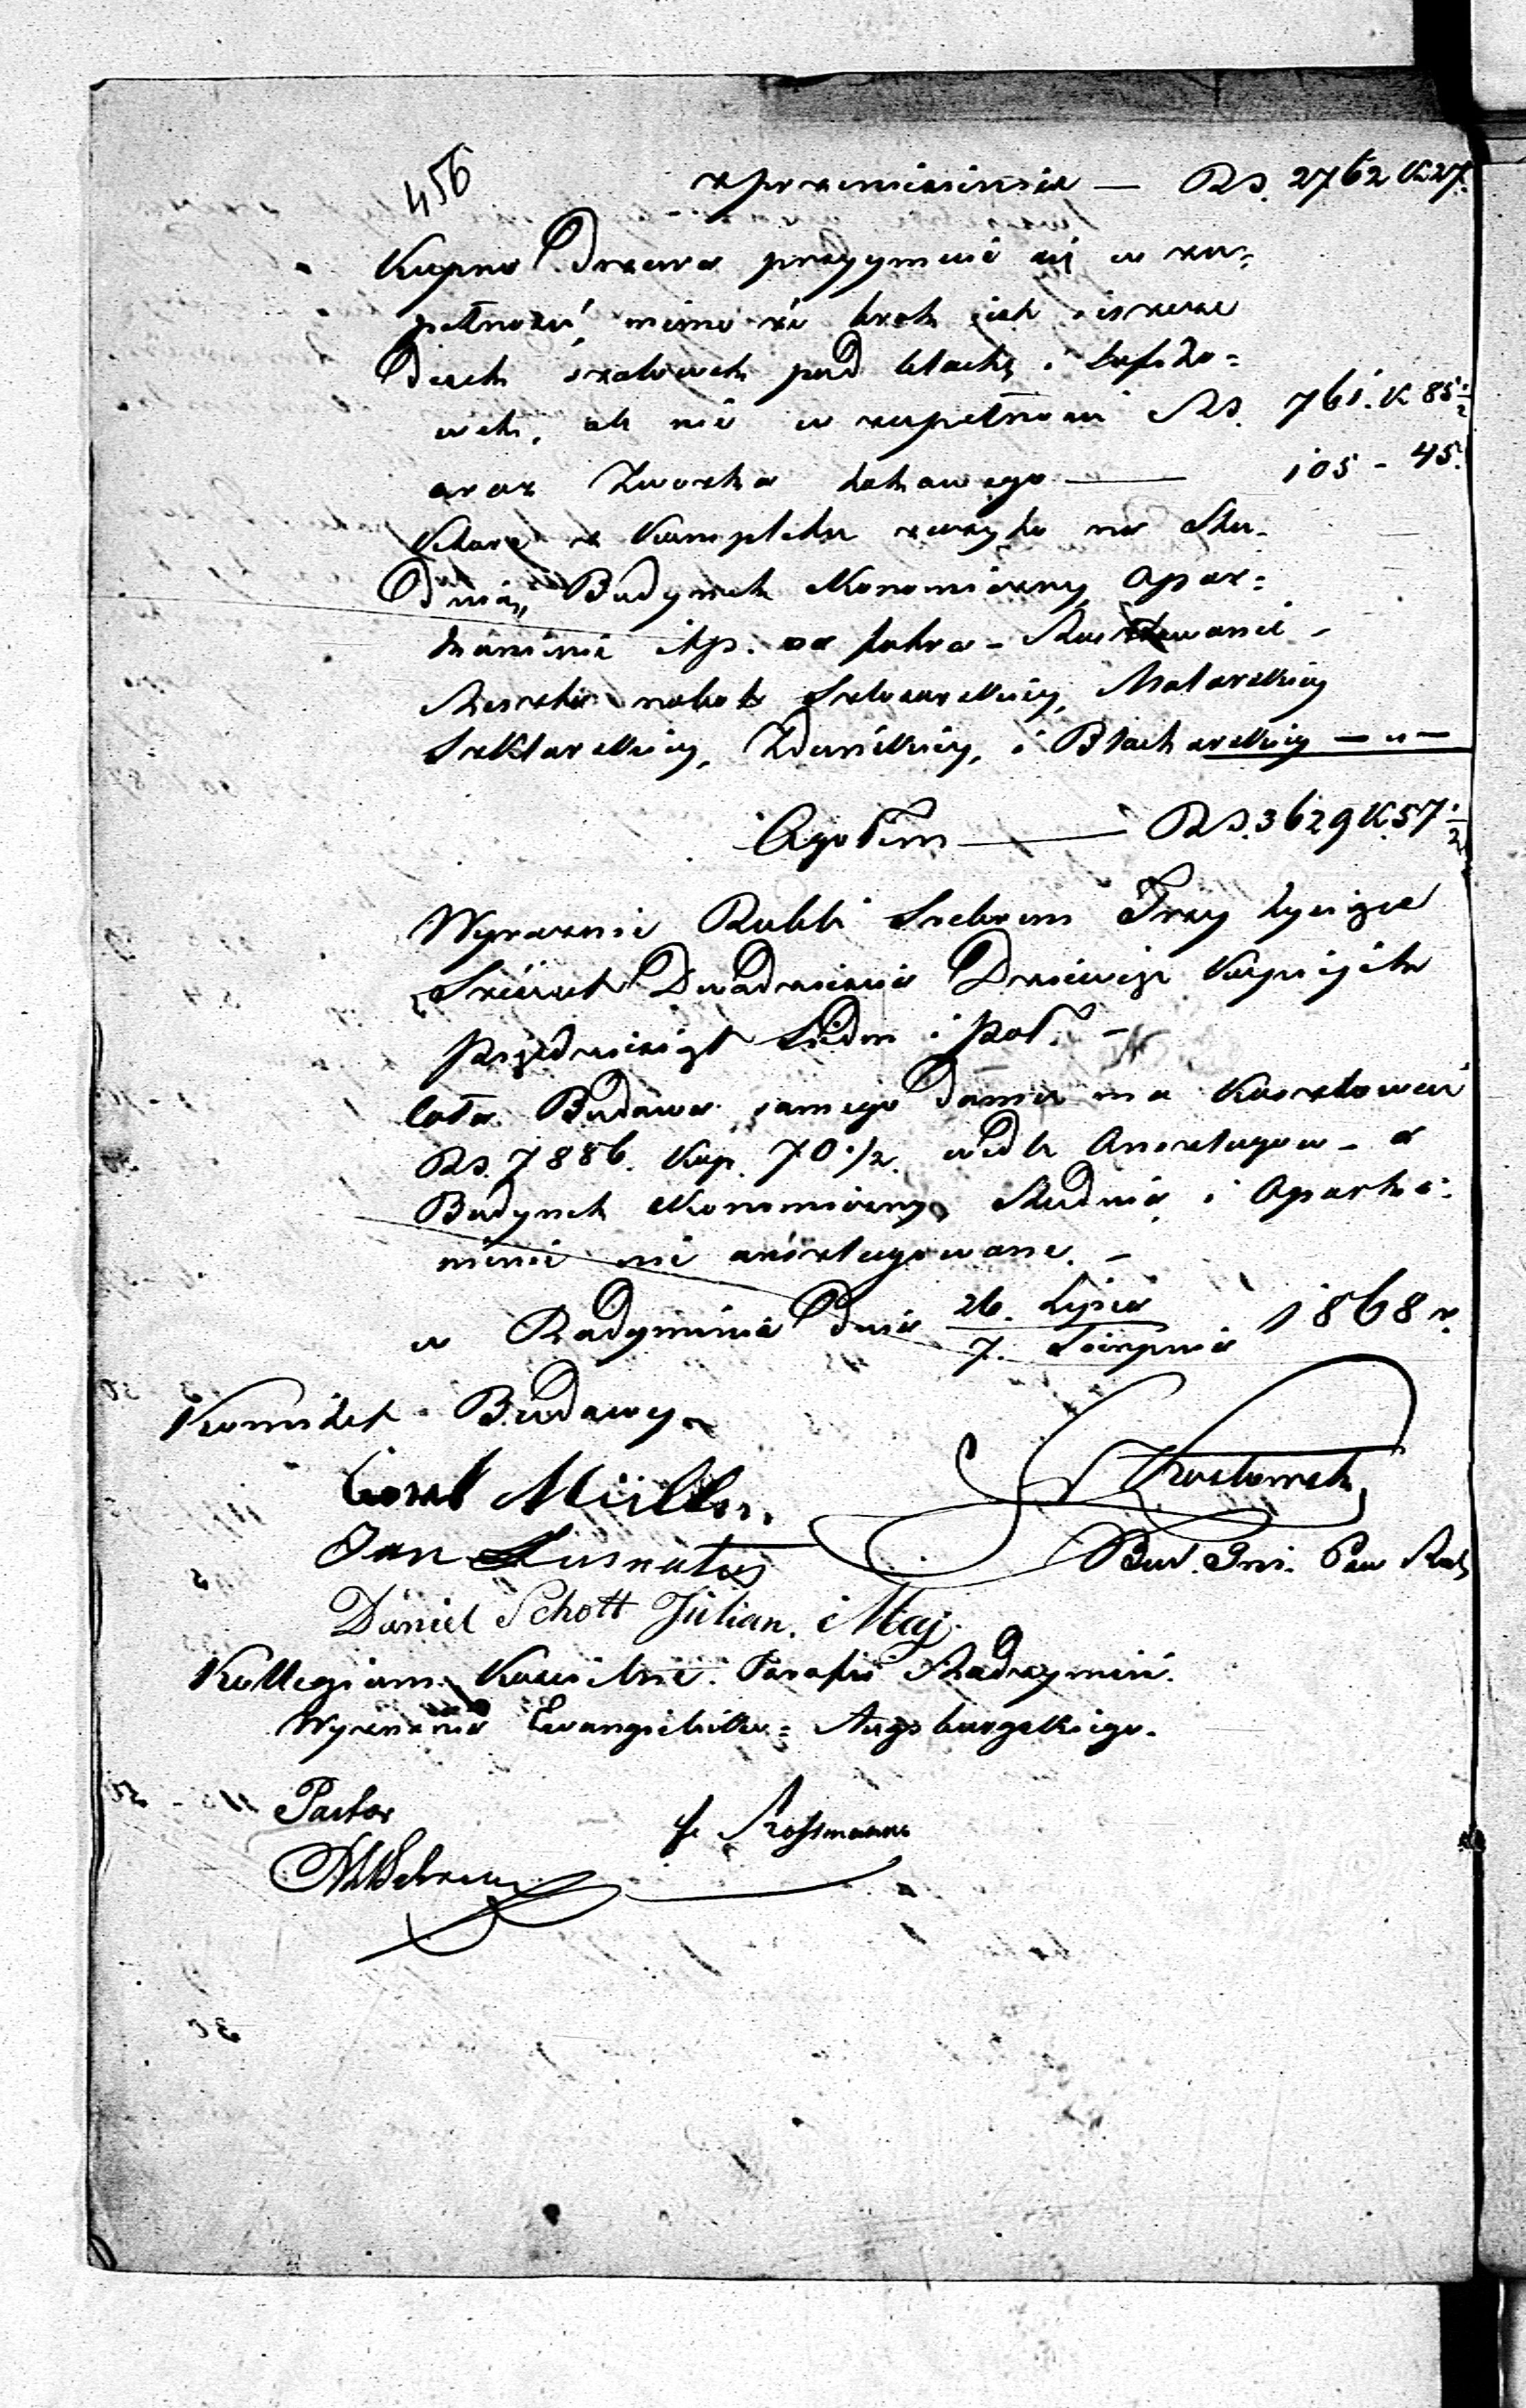 456
z przeniesienia — RS. 2762 K 27.
Kupno Drzewa przyymuie się w zu=
pełności, mimo że brak ich ieszcze
Desek szalowych pod blachę i Sufito=
wch, ale nie w zupełności RS. 761. K 85 1/2
oraz Zwozka takowego — 105 - 45.
które w Komplecie na Stu-
dnię, Budynek Ekonomiczny, Apar=
tamenie itp. - -
Reszta robot Stolarskiey, Malarskiey
Szklarskiey, Zduńskiey, i Blacharskiey — „ —
Ogołem — RS. 3629 K. 57 1/2
Wyraznie Rubli Srebrem Trzy tysiące
Sześćset Dwadzieścia Dziewięć Kopiejek
pięćdziesiąt Siedm i Poł. —
Cała Budowa samego Domu ma Kosztować
RS. 7886. Kop. 70 1/2. wedle Anszlagow - a
Budynek Ekonomiczny, Studnia i Aparta=
menie nie anszlagowane. —
w Radyminie Dnia 26. Lipca / 7. Sierpnia 1868 r.
Komitet Budowy
Müller.
Jan
Bud. Pow. Rad
Daniel Schott Julian. Maj.
Kollegium Koscielne. Parafii Radzymin.
Wyznania Ewangielicko = Augsburgskiego.
Pastor